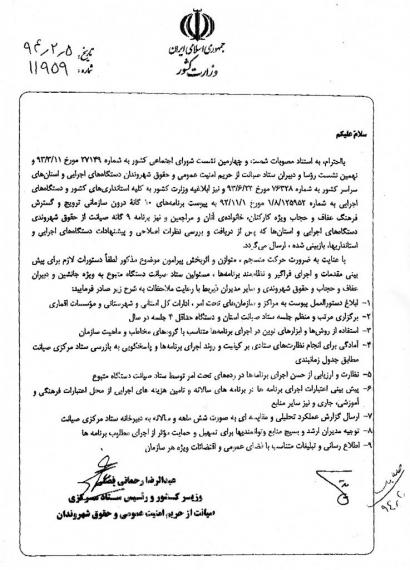 جمهوری اسلامی ایران
وزارت کشور
تاریخ: ۹۴،۲،۵
شماره: ۱۱۹۵۹
سلام علیکم
بااحترام، به استناد مصوبات شصت و چهارمین نشست شورای اجتماعی کشور به شماره ۲۷۱۴۹ مورخ ۹۳/۲/۱۱ و
نهمین نشست رؤسا و دبیران ستاد صیانت از حریم امنیت عمومی و حقوق شهروندان دستگاه‌های اجرایی و استان‌های
سراسر کشور به شماره ۷۶۳۲۸ مورخ ۹۳/۶/۲۲ و نیز ابلاغیه وزارت کشور به کلیه استانداری‌های کشور و دستگاه‌های
اجرایی به شماره ۱/۸/۱۲۵۹۵۲ مورخ ۹۲/۱۱/۱ به پیوست برنامه‌های ۱۰ گانه درون سازمانی ترویج و گسترش
فرهنگ عفاف و حجاب ویژه کارکنان، خانواده‌ی آنان و مراجعین و نیز برنامه ۹ گانه صیانت از حقوق شهروندی
دستگاه‌های اجرایی و استان‌ها که پس از دریافت و بررسی نظرات اصلاحی و پیشنهادات دستگاه‌های اجرایی و
استانداریها، بازبینی شده، ارسال می‌گردد.
با عنایت به ضرورت حرکت منسجم، متوازن و اثربخش پیرامون موضوع مذکور لطفاً دستورات لازم برای پیش
بینی مقدمات و اجرای فراگیر و نظام‌مند برنامه‌ها، مسئولین ستاد صیانت دستگاه متبوع به ویژه جانشین و دبیران
عفاف و حجاب و حقوق شهروندی و سایر مدیران ذیربط با رعایت ملاحظات به شرح زیر صادر فرمایید:
۱- ابلاغ دستورالعمل پیوست به مراکز و سازمان‌های تحت امر، ادارات کل استانی و شهرستانی و مؤسسات اقماری
۲- برگزاری مرتب و منظم جلسه ستاد صیانت استان و دستگاه حداقل ۴ جلسه در سال
۳- استفاده از روش‌ها و ابزارهای نوین در اجرای برنامه‌ها متناسب با گروه‌های مخاطب و ماهیت سازمان
۴- آمادگی برای انجام نظارت‌های ستادی بر کیفیت و روند اجرای برنامه‌ها و پاسخگویی به بازرسی ستاد مرکزی صیانت
مطابق جدول زمانبندی
۵- نظارت و ارزیابی از حسن اجرای برنامه‌ها در رده‌های تحت امر توسط ستاد صیانت دستگاه متبوع
۶- پیش بینی اعتبارات اجرای برنامه ها در برنامه های سالانه و تامین هزینه های اجرایی از محل اعتبارات فرهنگی و
آموزشی، جاری و نیز سایر منابع
۷- ارسال گزارش عملکرد تحلیلی و مقایسه ای به صورت شش ماهه و سالانه به دبیرخانه ستاد مرکزی صیانت
۸- توجیه مدیران ارشد و بسیج منابع و توانمندیها برای تسهیل و حمایت مؤثر از اجرای مطلوب برنامه ها
۹- اطلاع رسانی و تبلیغات متناسب با فضای عمومی و اقتضائات ویژه هر سازمان
عبدالرضا رحمانی فضلی
وزیر کشور و رئیس ستاد مرکزی
صیانت از حریم امنیت عمومی و حقوق شهروندان